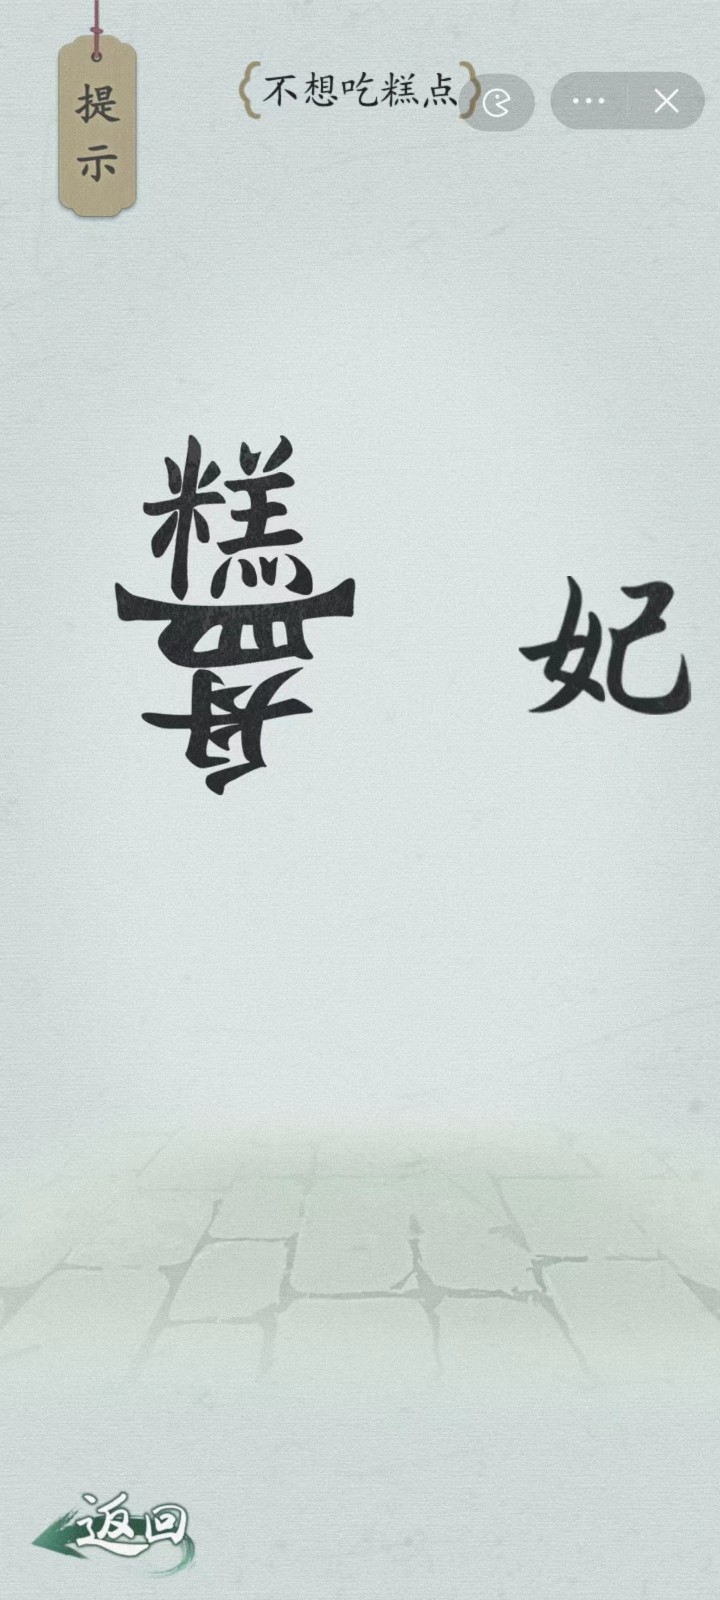 提示
{不想吃糕点}
糕
妃
返回